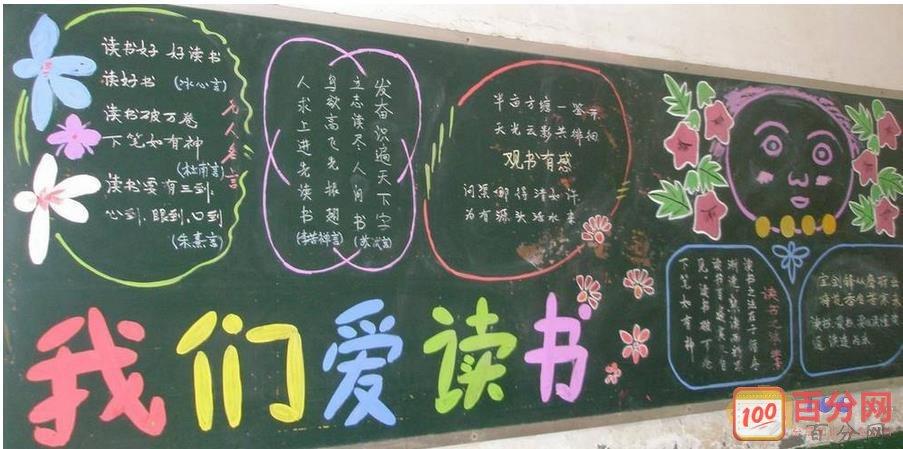 读书好 好读书
读好书 (冰心言)
读书破万卷
下笔如有神
(杜甫言)
读书要有三到,
心到、眼到、口到
(朱熹言)
名人名言
发奋识遍天下字
立志读尽人间书
(苏轼言)
鸟欲高飞先振翅
人求上进先读书
(李苦禅言)
半亩方塘一鉴开
天光云影共徘徊
观书有感
问渠哪得清如许
为有源头活水来
读书之法在于循序
渐进,熟读而精思
下笔如有神
宝剑锋从磨砺出
梅花香自苦寒来
我们爱读书
100
百分网
百分网